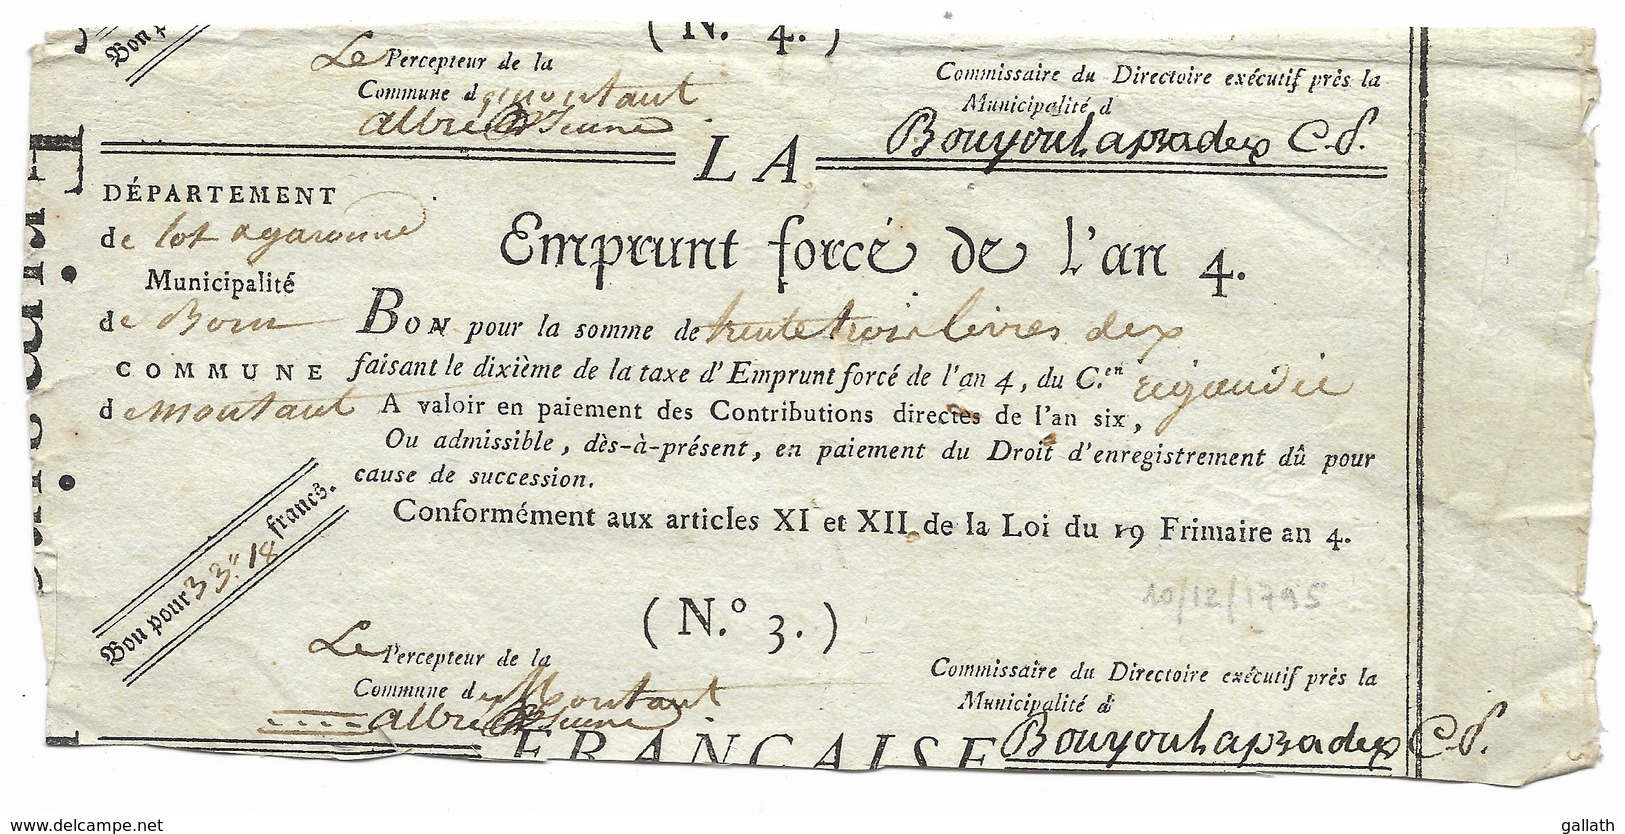 Bon p
(N. 4.)
Le Percepteur de la
Commune de montaut
Commissaire du Directoire exécutif près la
Municipalité d
Albre Jeune
Bouyoulapradex C.S.
LA
DÉPARTEMENT
de lot & garonne
Emprunt forcé de l'an 4.
Municipalité
de Born
BON pour la somme de trente trois livres dix
COMMUNE
faisant le dixième de la taxe d'Emprunt forcé de l'an 4, du C.en rigaudie
de montaut
A valoir en paiement des Contributions directes de l'an six,
Ou admissible, dès-à-présent, en paiement du Droit d'enregistrement dû pour
cause de succession.
Conformément aux articles XI et XII de la Loi du 19 Frimaire an 4.
Bon pour 33." 18 francs.
10/12/1795
(N.° 3.)
Le Percepteur de la
Commune de Montaut
Commissaire du Directoire exécutif près la
Municipalité d
Albre Jeune
Bouyoulapradex C.S.
FRANÇAISE
www.delcampe.net
gallath